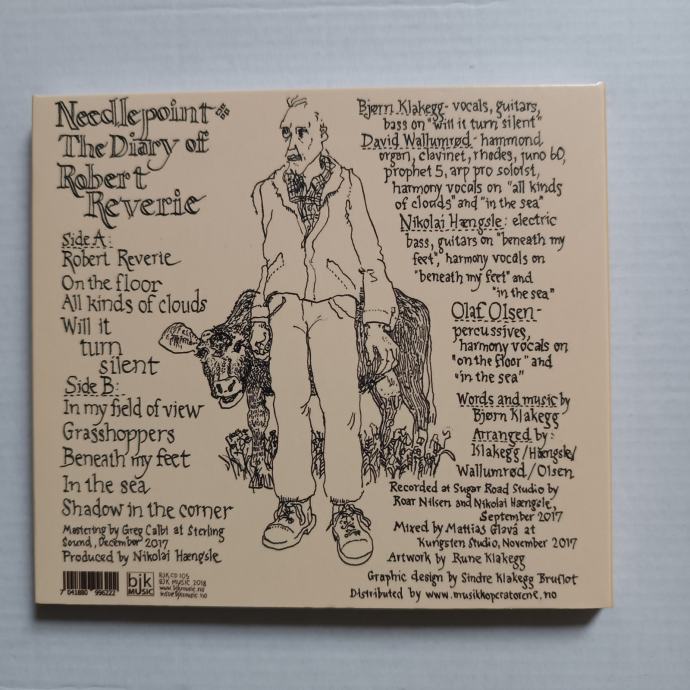 Needlepoint
The Diary of
Robert
Reverie
Side A:
Robert Reverie
On the floor
All kinds of clouds
Will it
turn
silent
Side B:
In my field of view
Grasshoppers
Beneath my feet
In the sea
Shadow in the corner
Mastering by Greg Calbi at Sterling
Sound, December 2017
Produced by Nikolai Hængsle
7 041880 996222
bjk
MUSIC
BJK CD 105
BJK MUSIC 2018
www.bjkmusic.no
Bjørn Klakegg - vocals, guitars,
bass on "will it turn silent"
David Wallumrød - hammond
organ, clavinet, rhodes, juno 60,
prophet 5, arp pro soloist,
harmony vocals on "all kinds
of clouds" and "in the sea"
Nikolai Hængsle: electric
bass, guitars on "beneath my
feet", harmony vocals on
"beneath my feet" and
"in the sea"
Olaf Olsen -
percussives,
harmony vocals on
"on the floor" and
"in the sea"
Words and music by
Bjørn Klakegg
Arranged by:
Klakegg/Hængsle/
Wallumrød/Olsen
Recorded at Sugar Road Studio by
Roar Nilsen and Nikolai Hængsle,
September 2017
Mixed by Mattias Glavå at
Kungsten Studio, November 2017
Artwork by Rune Klakegg
Graphic design by Sindre Klakegg Bruflot
Distributed by www.musikkoperatorene.no